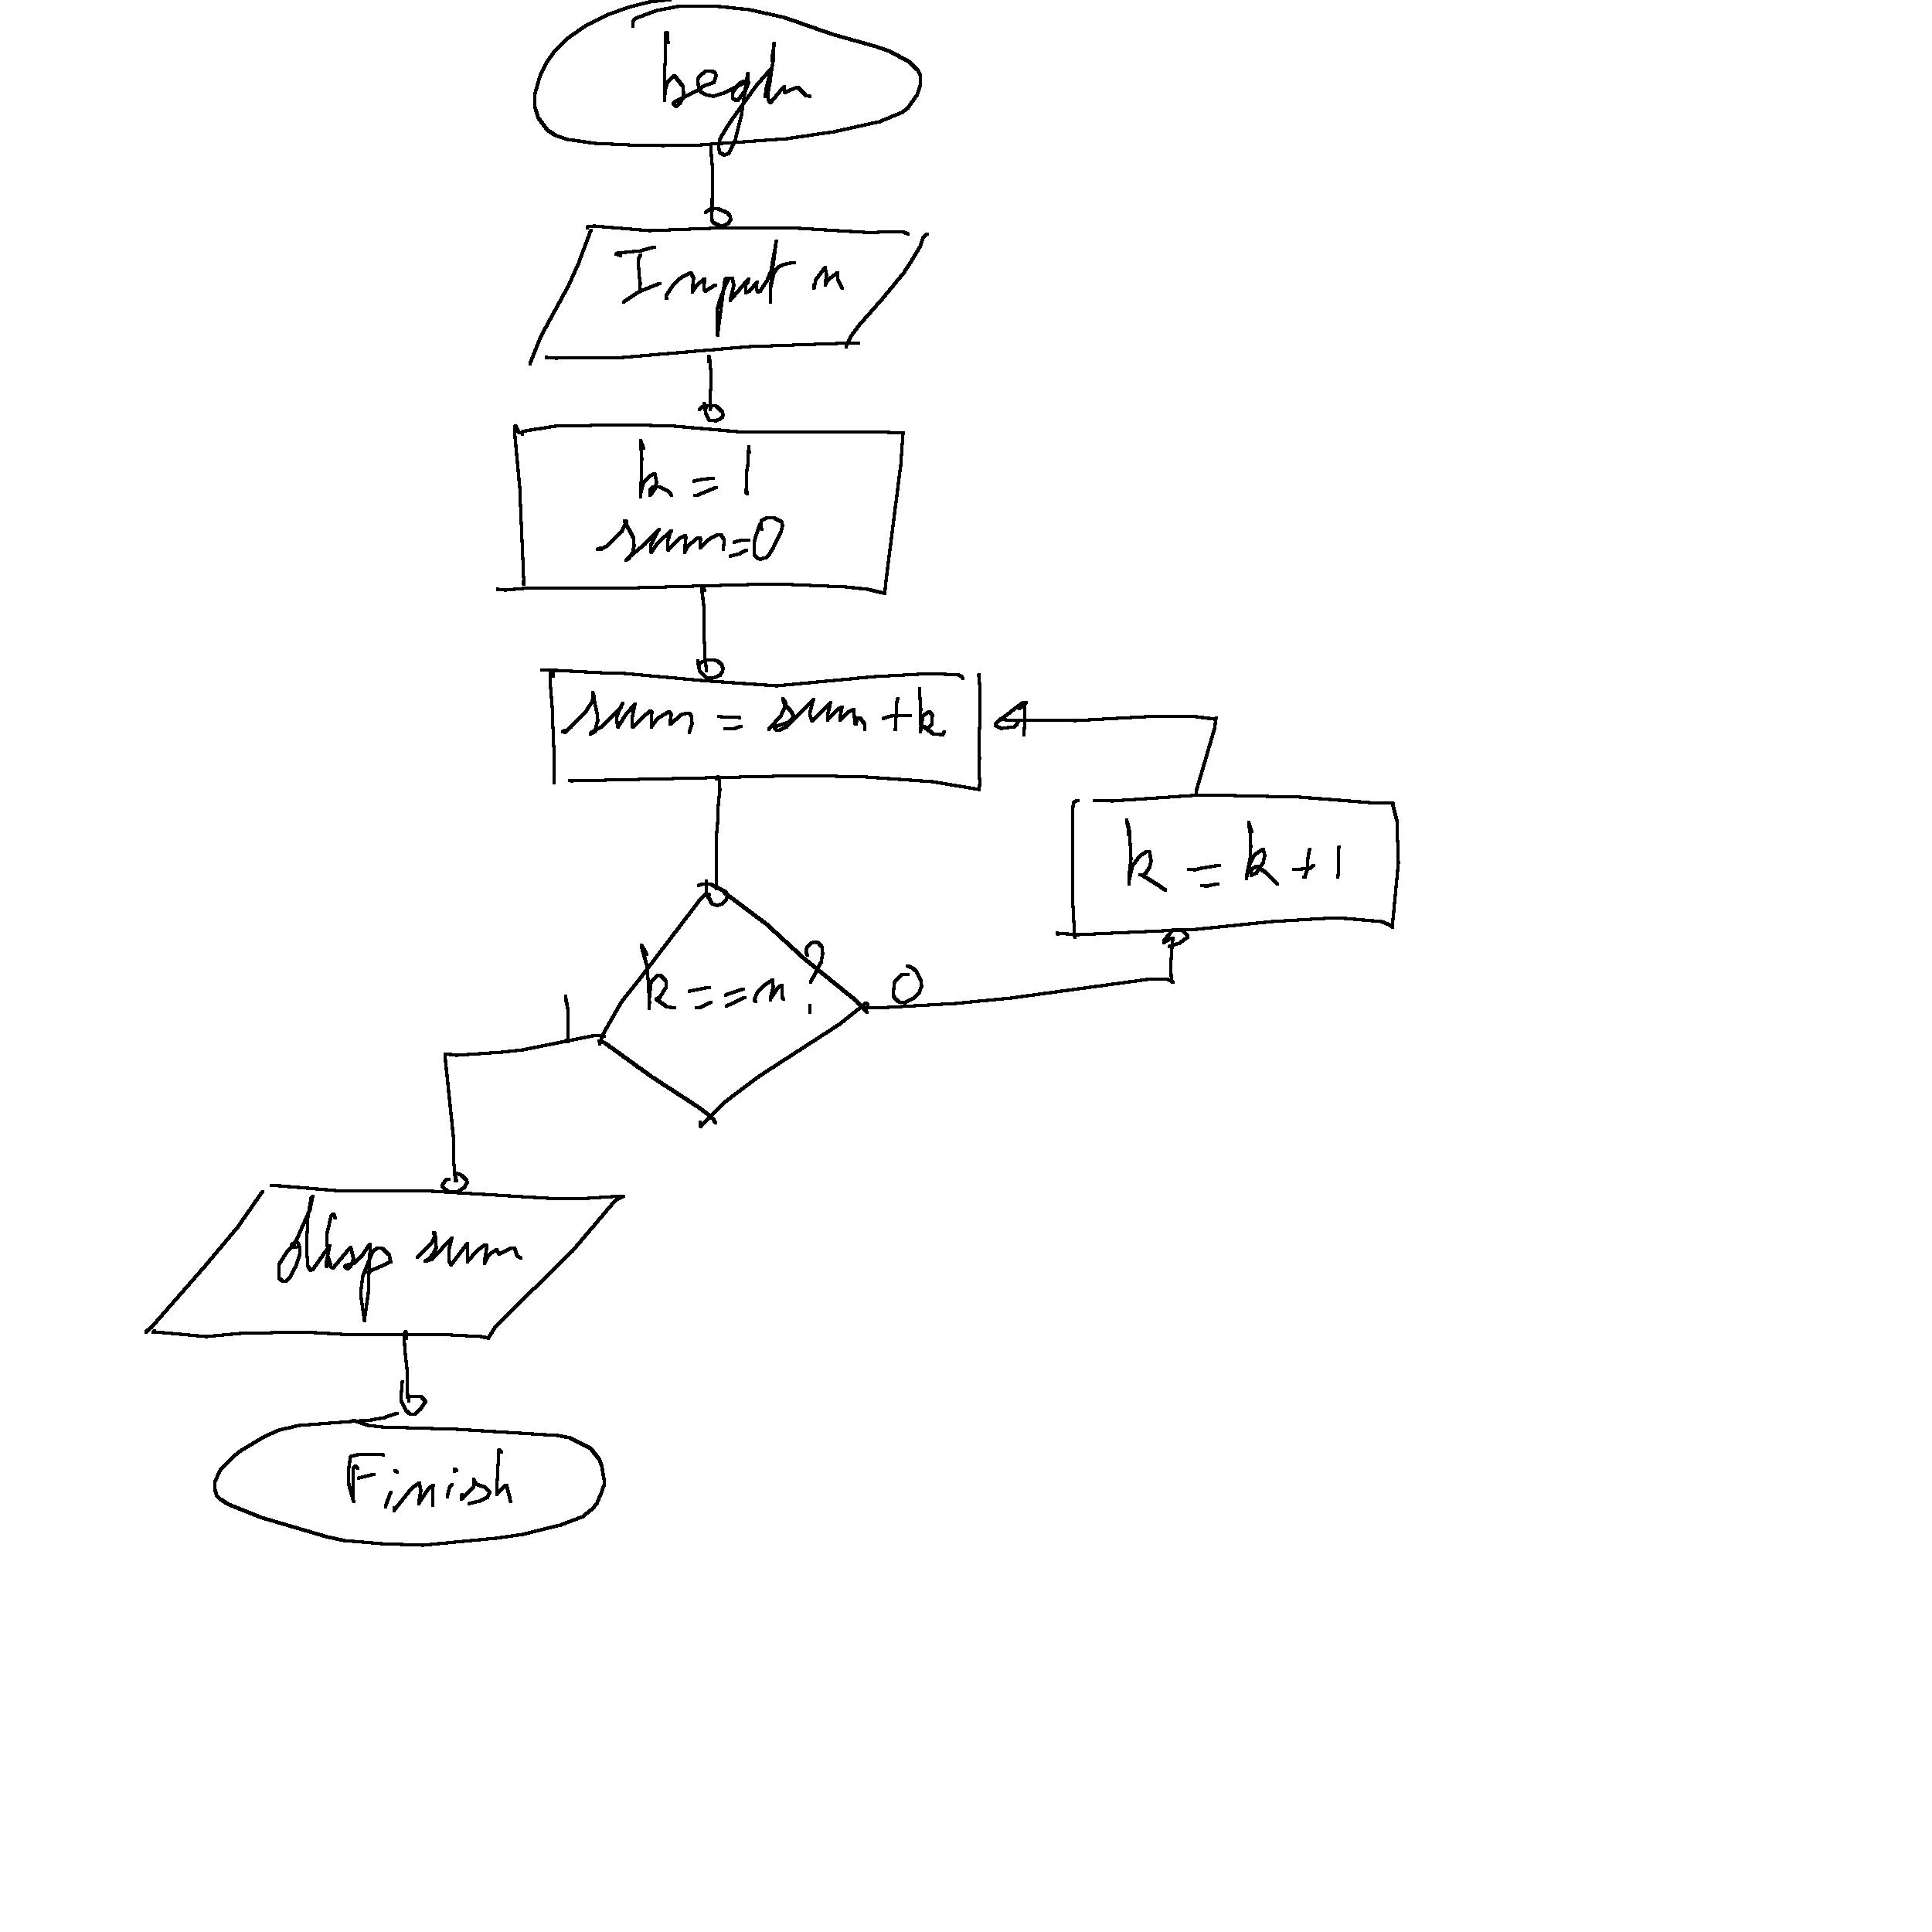 begin
Input n
k = 1
sum=0
sum = sum + k
k = k + 1
k == n?
0
1
disp sum
Finish